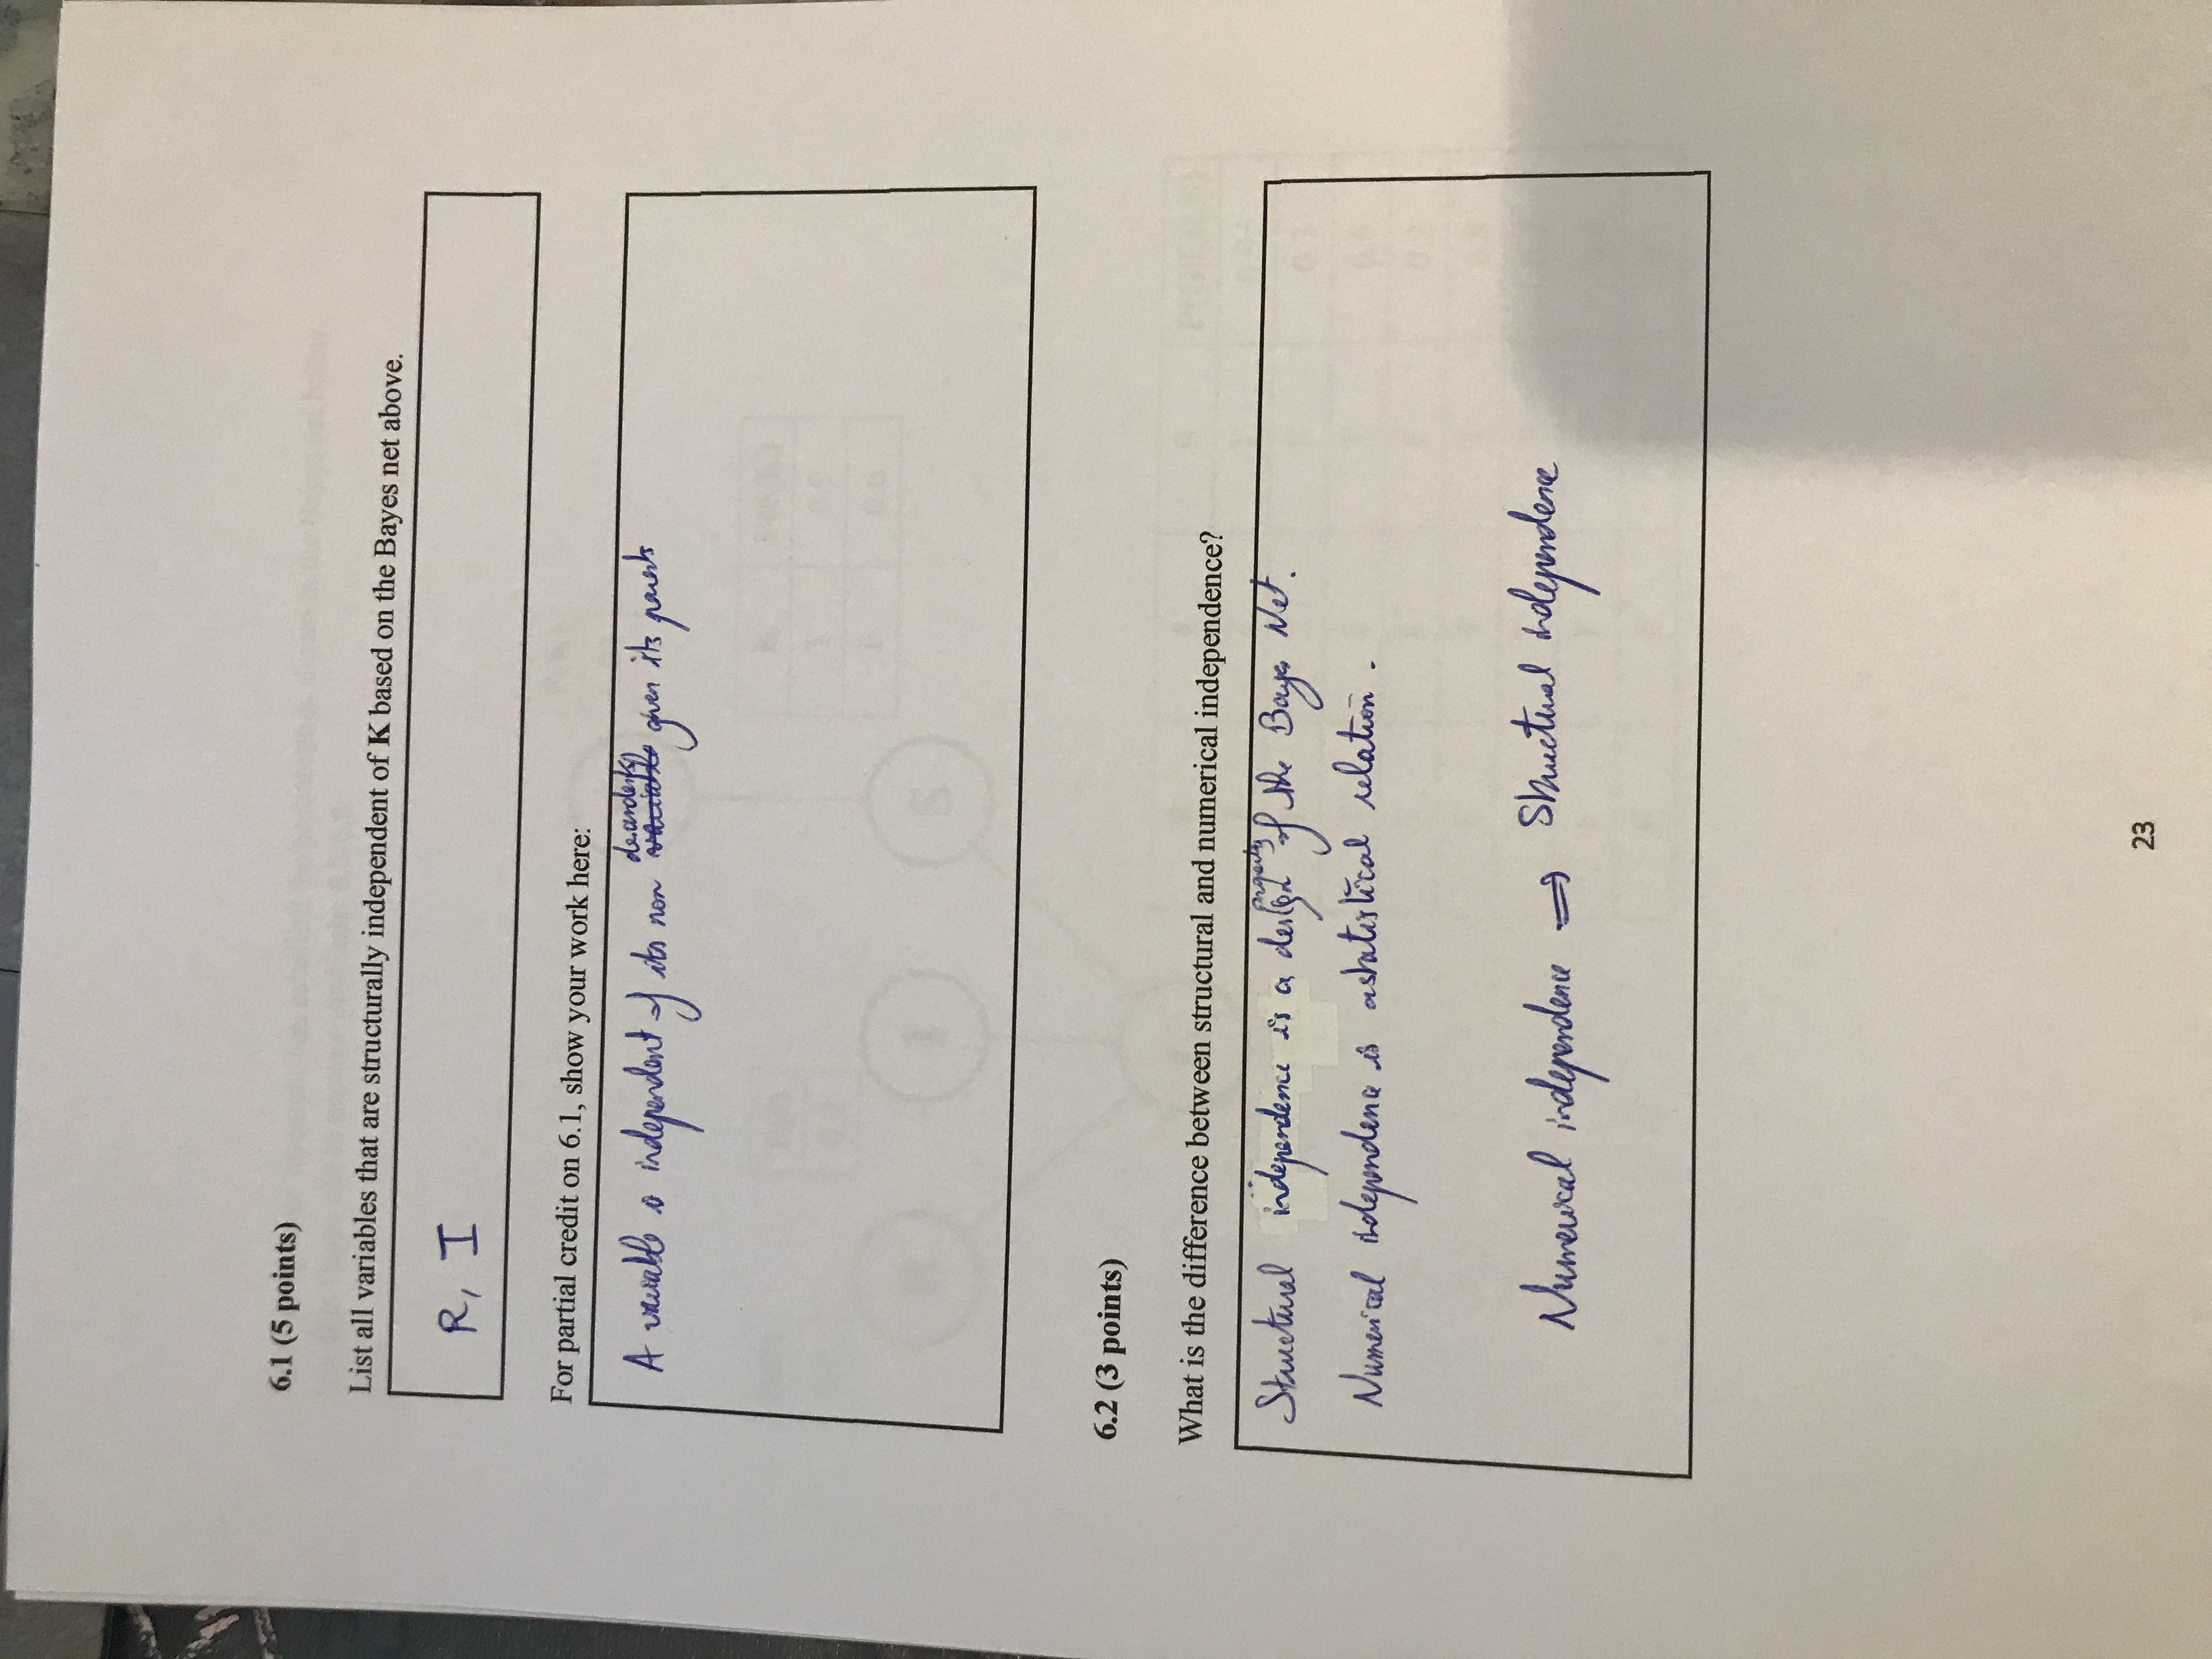 6.1 (5 points)
List all variables that are structurally independent of K based on the Bayes net above.
R, I
For partial credit on 6.1, show your work here:
descendents
A variable is independent of its non variable given its parents
6.2 (3 points)
What is the difference between structural and numerical independence?
property
Structural independence is a design of the Bayes Net.
Numerical independence is a statistical relation.
Numerical independence ⇒ Structural independence
23